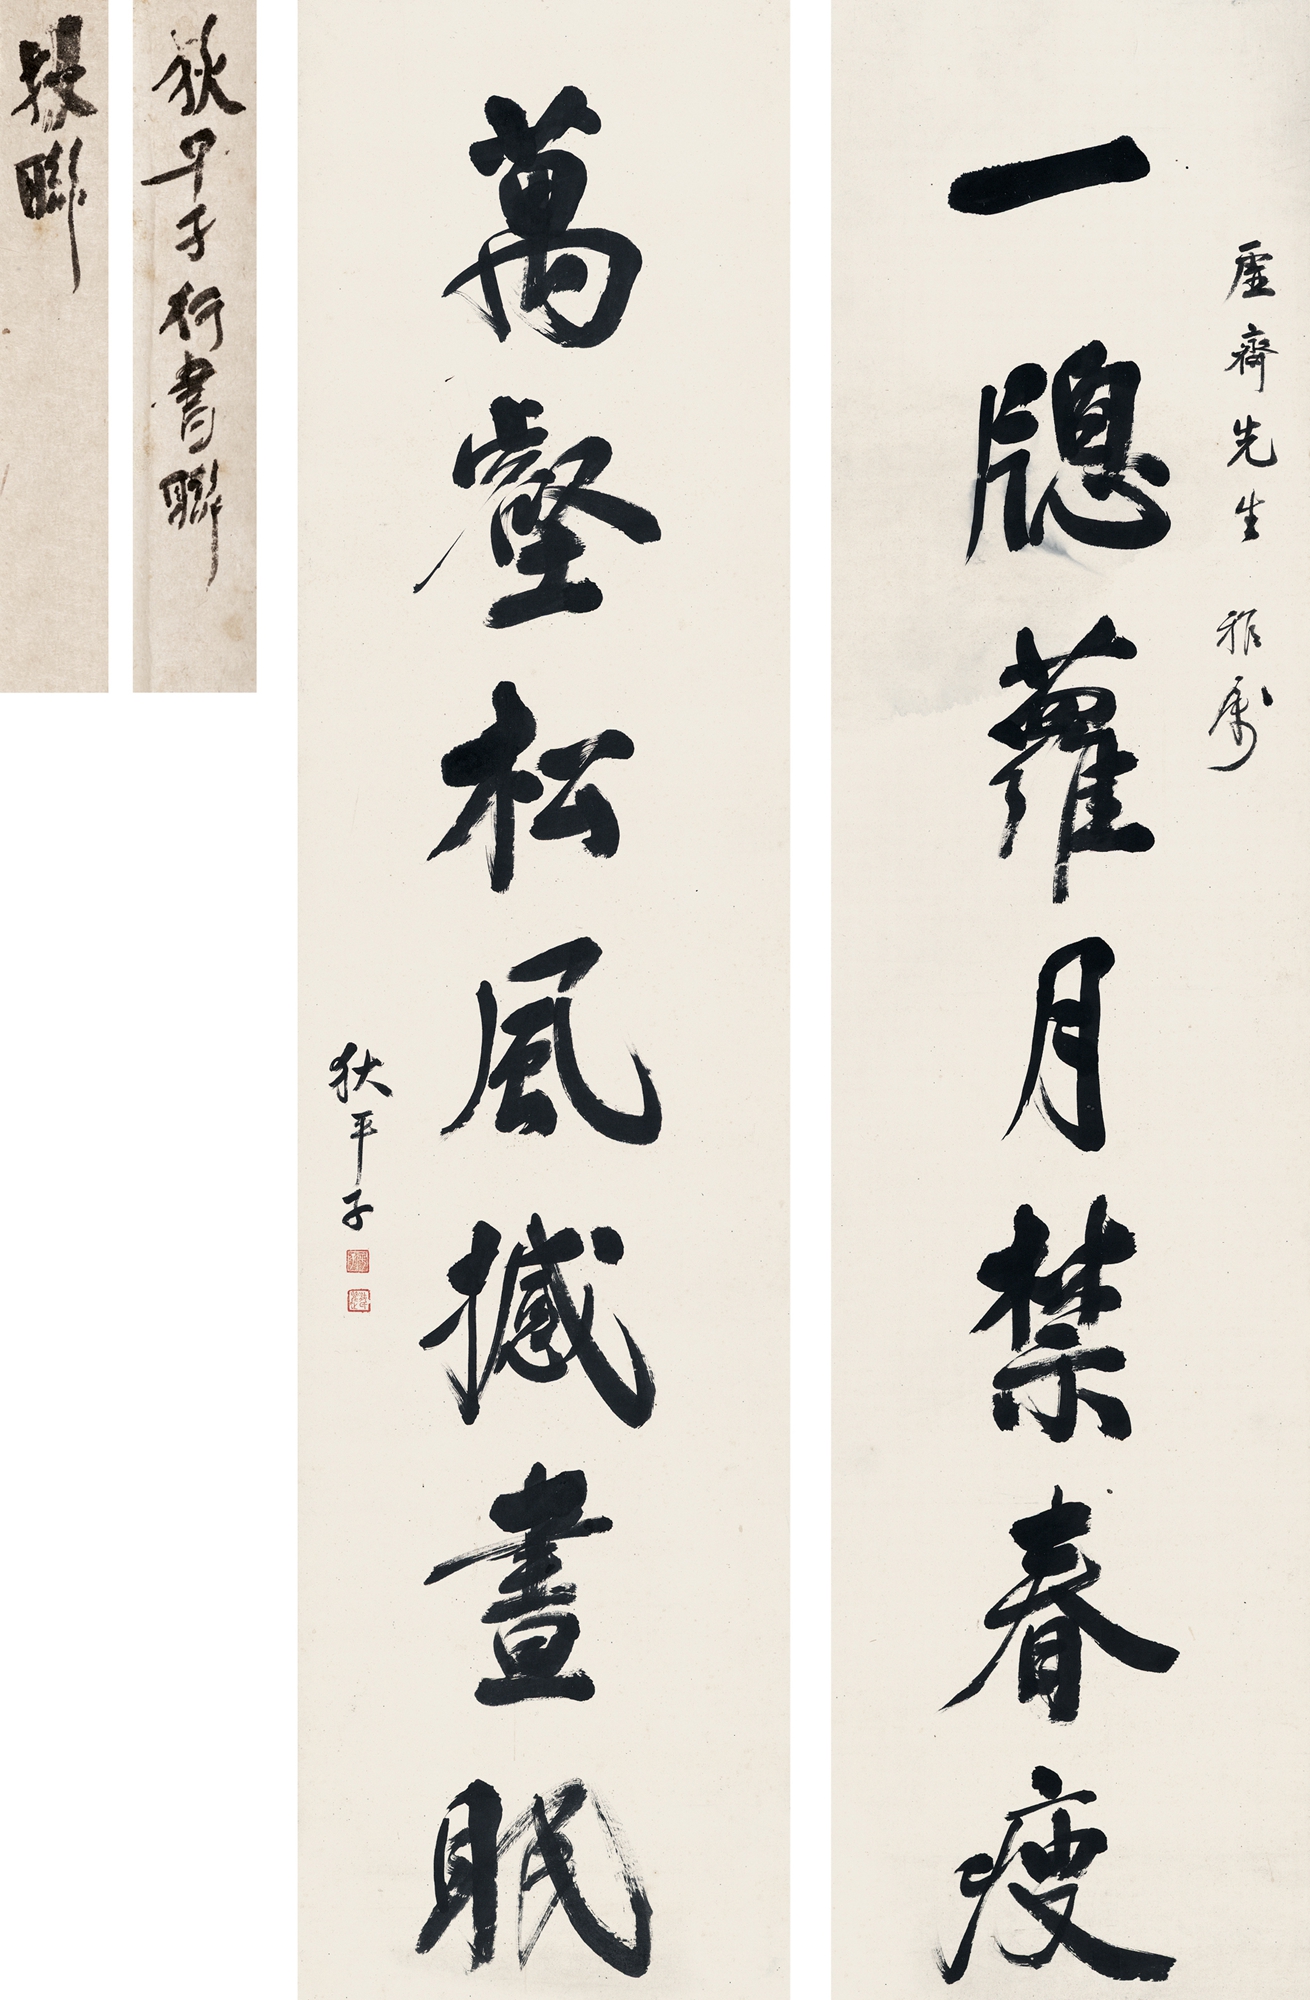 虛齋先生 雅屬
一牕蘿月禁春瘦
萬壑松風撼晝眠
狄平子
狄平子行書聯
聯